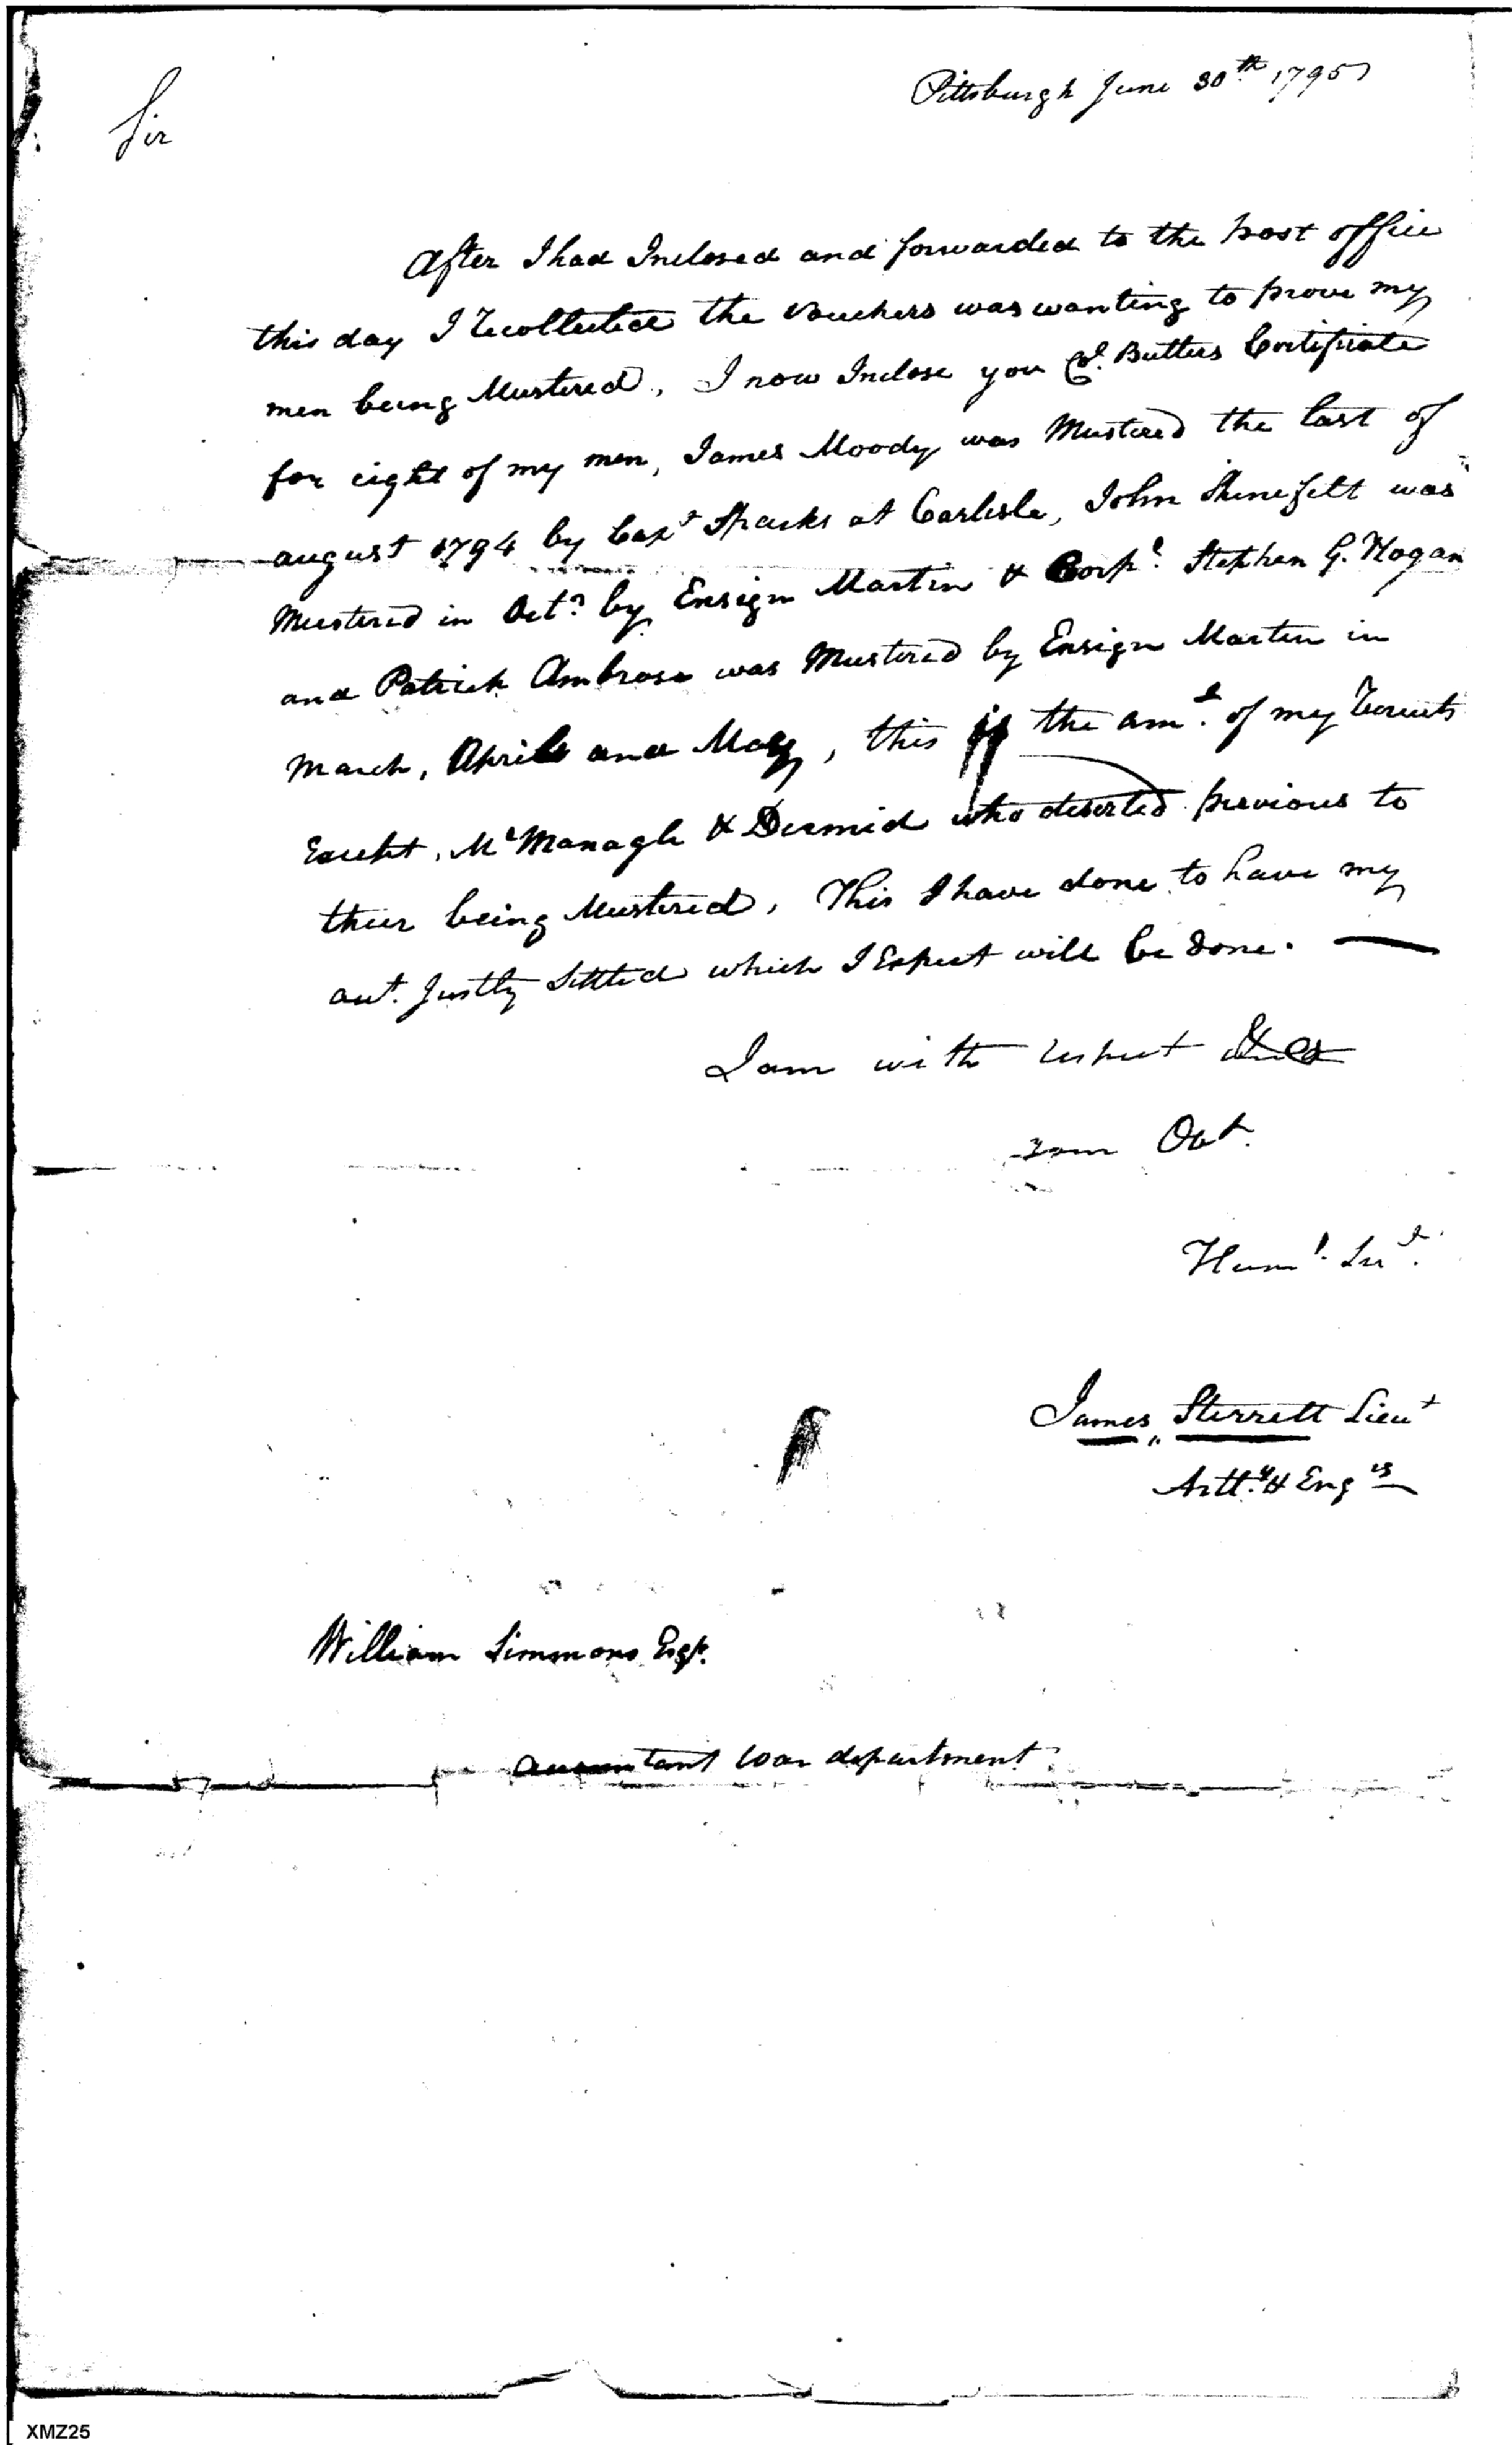 Pittsburgh June 30th 1795
Sir
After I had Inclosed and forwarded to the post office
this day I recollected the vouchers was wanting to prove my
men being Mustered, I now Inclose you Butlers Certificate
for eight of my men, James Moody was Mustered the last of
august 1794 by Capt Sparks at Carlisle, John Shinefelt was
Mustered in Octr by Ensign Martin & Corpl Stephen G. Hogan
and Patrick Ambrose was Mustered by Ensign Martin in
March, April and May, this is the amt of my recruits
Except, McManagle & Dermid who deserted previous to
their being Mustered, This I have done to have my
act. Justly Settled which I Expect will be done. —
I am with respect
your Obt.
Huml. Sert.
James Sterrett Lieut
Artly & Engrs
William Simmons Esqr.
accountant War department
XMZ25